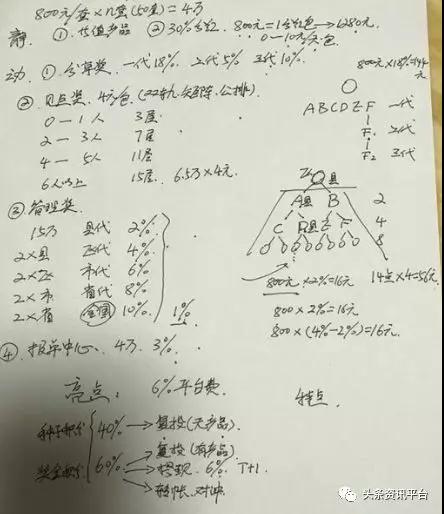 800元/套×几套(50套)=4万
静. ①.代值产品 ②30%分红. 800元=1分红包→6280元.
0—10元/天/包
动. ①.分享奖. 一代18%. 二代5% 三代10%. 800元×18%=144元
②.见点奖. 4元/包.(22轨.矩阵.公排).
0—1人 3层
2—3人 7层
4—5人 11层
6人以上 15层. 6.5万×4元.
ABCDZF 一代
F₁ 二代
F₂ 三代
县
A县 B 2
C F 4
8
③.管理奖.
15万 县代 2%
2×县 区代 4%
2×区 市代 6%
2×市 省代 8%
2×省 全国 10% 1%
800元×2%=16元 14点×4=56元
800×2%=16元
800×(4%-2%)=16元
④.报单中心. 4万. 3%.
亮点: 6%平台费. 特点.
种子积分 40%→复投(无产品)
奖金积分 60%→复投(有产品)
→提现. 6%. T+1
→转帐.对冲.
头条资讯平台